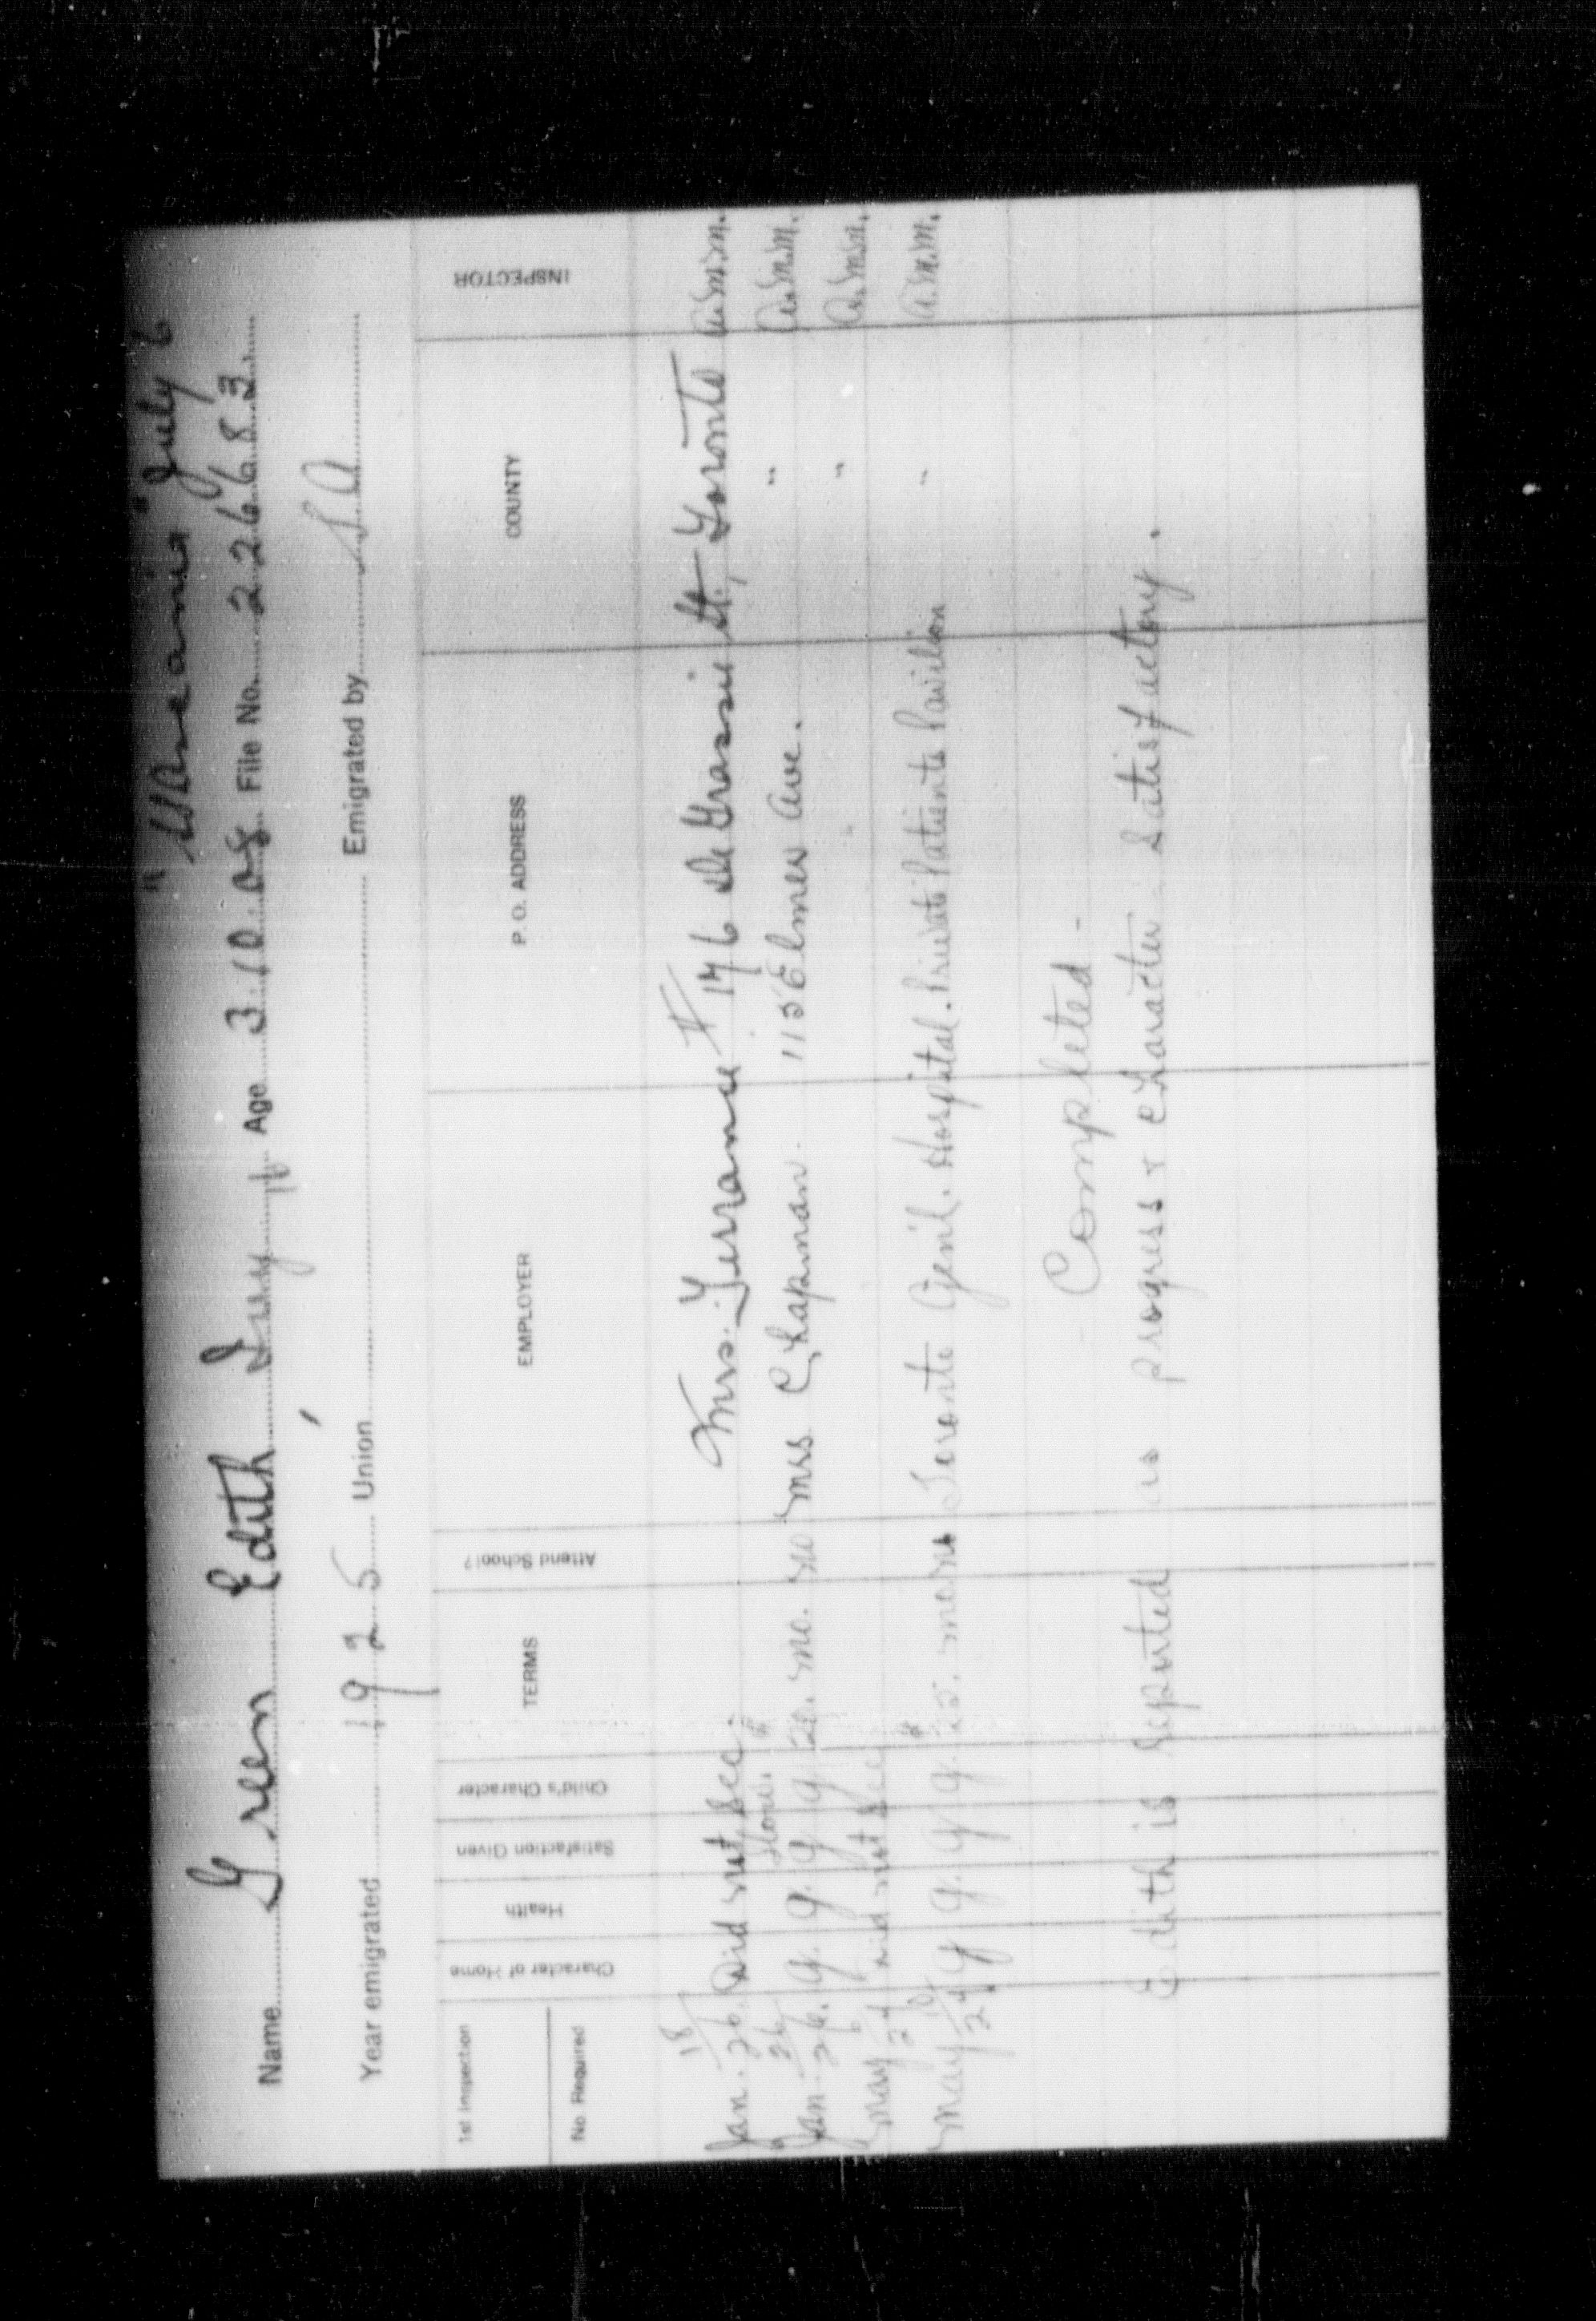 "Ascania" July 6
Name Green Edith Ivy 16 Age 3.10.08 File No. 226683
Year emigrated 1925 Union Emigrated by S.A
1st Inspection
No. Required
Character of Home
Health
Satisfaction Given
Child's Character
TERMS
Attend School?
EMPLOYER
P. O. ADDRESS
COUNTY
INSPECTOR
Jan. 18/26 Did not see. Mrs. Torrance # 176 De Grassi St. Toronto A.M.M.
Jan. 26/26. g. g. g g $20. mo. no Mrs Chapman. 115 Elmer Ave. " A.M.M.
May 6/27 did not see " A.M.M.
May 10/27. g g. g g. $ mo no Toronto Gen'l. Hospital. Private Patients Pavilion " A.M.M.
Completed -
Edith is reported as progress & character satisfactory.